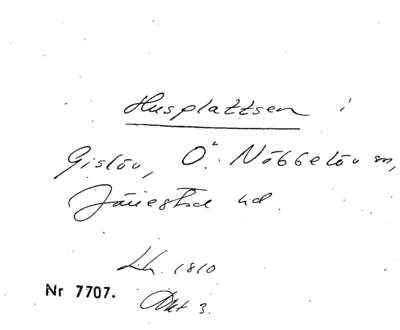 Husplattsen i
Gislöv, Ö. Nöbbelöv sn,
Järrestad hd.
Lh. 1810
Nr 7707. Akt 3.